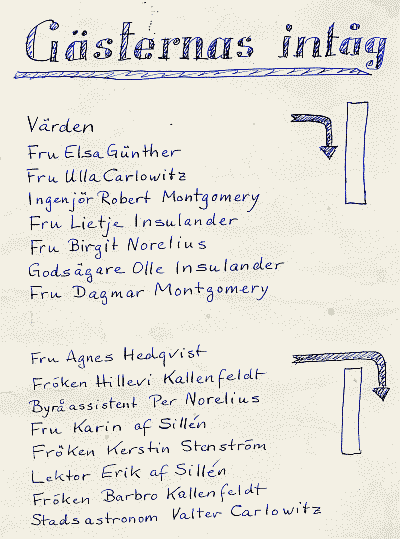 Gästernas intåg
Värden
Fru Elsa Günther
Fru Ulla Carlowitz
Ingenjör Robert Montgomery
Fru Lietje Insulander
Fru Birgit Norelius
Godsägare Olle Insulander
Fru Dagmar Montgomery
Fru Agnes Hedqvist
Fröken Hillevi Kallenfeldt
Byråassistent Per Norelius
Fru Karin af Sillén
Fröken Kerstin Stenström
Lektor Erik af Sillén
Fröken Barbro Kallenfeldt
Stadsastronom Valter Carlowitz